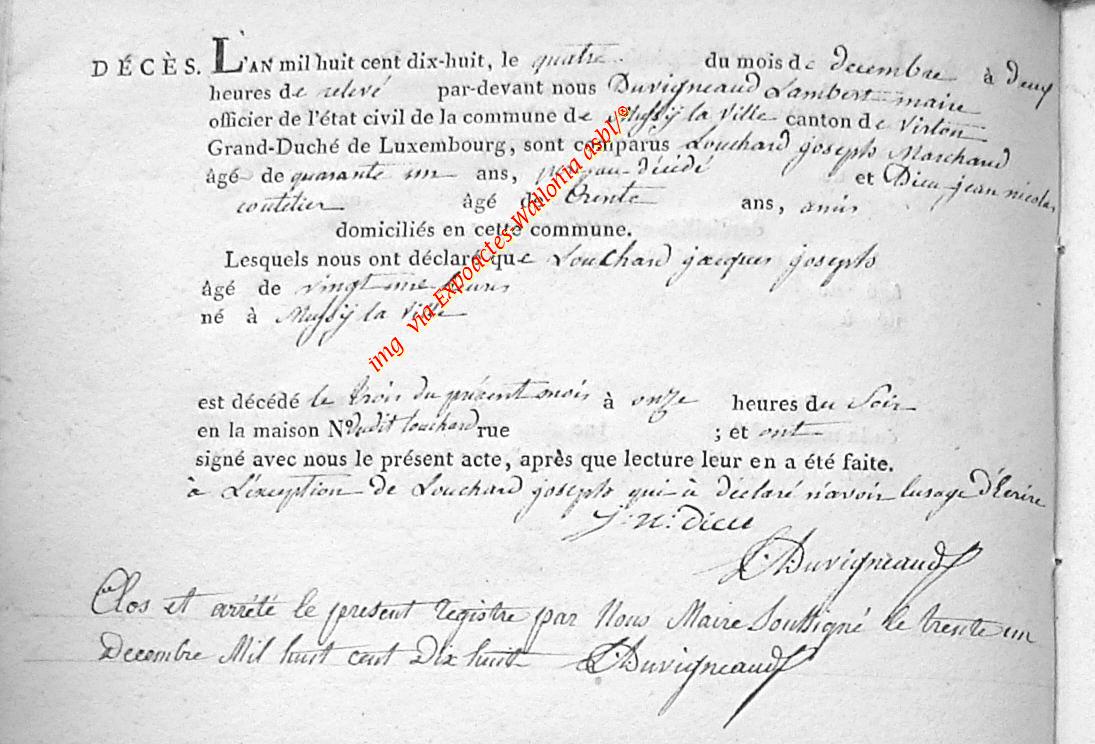 DÉCÈS. L'AN mil huit cent dix-huit, le quatre du mois de decembre à deux
heures de relevé par-devant nous Duvigneaud Lambert maire
officier de l'état civil de la commune de Mussÿ la Ville canton de Virton
Grand-Duché de Luxembourg, sont comparus Louchard joseph Marchand
âgé de quarante un ans, du décidé et Dieu jean nicolas
coutelier âgé de trente ans, amis
domiciliés en cette commune.
Lesquels nous ont déclaré que Louchard jacques joseph
âgé de vingt
né à Mussÿ la Ville
est décédé le trois du présent mois à onze heures du Soir
en la maison No. dudit Louchard rue ; et ont
signé avec nous le présent acte, après que lecture leur en a été faite.
à L'exeption de Louchard joseph qui à déclaré n'avoir lusage d'Ecrire
j. n. dieu
L. Duvigneaud
Clos et arrété le present registre par Nous Maire Soussigné le trente un
Decembre Mil huit cent Dix huit L. Duvigneaud
img via Expoactes-Wallonia asbl/©